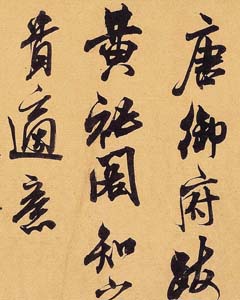 唐御府跋
黄秘閣知
貴適意